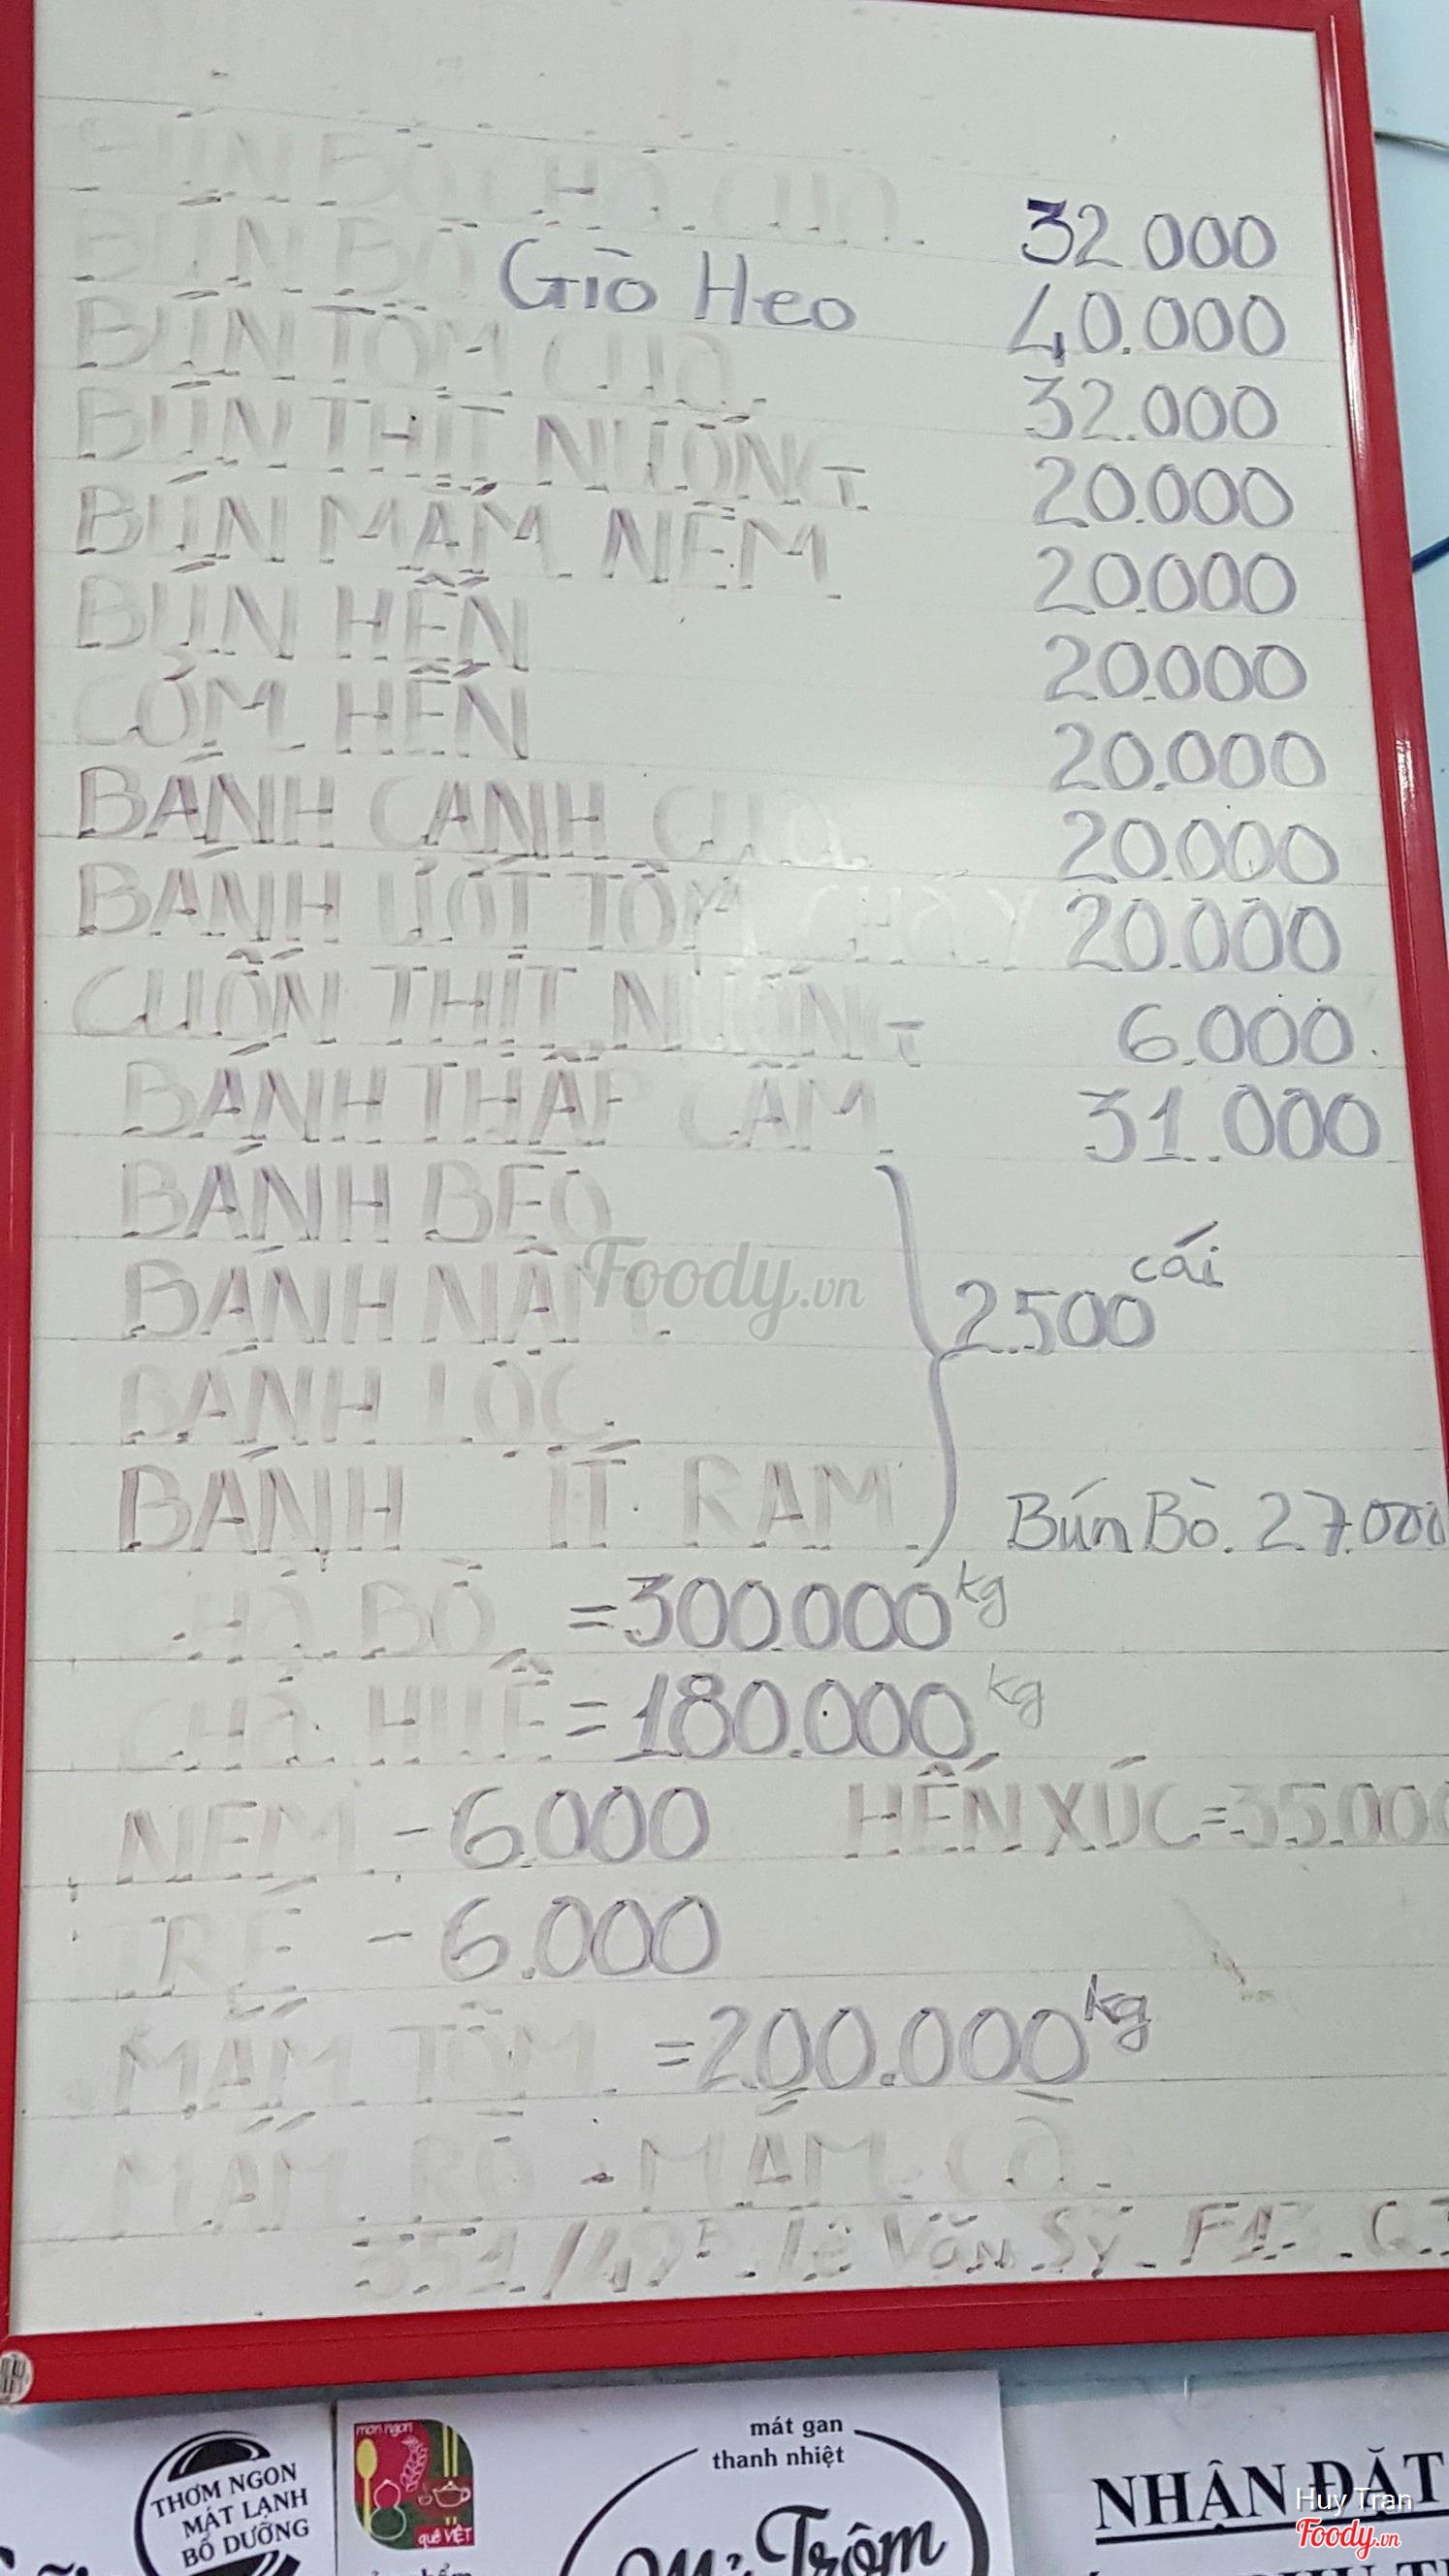 BÚN BÒ CHẢ CUA 32.000
BÚN BÒ Giò Heo 40.000
BÚN TÔM CUA 32.000
BÚN THỊT NƯỚNG 20.000
BÚN MẮM NÊM 20.000
BÚN HẾN 20.000
CƠM HẾN 20.000
BÁNH CANH CUA 20.000
BÁNH ƯỚT TÔM CHẤY 20.000
CUỐN THỊT NƯỚNG 6.000
BÁNH THẬP CẨM 31.000
BÁNH BÈO
BÁNH NẬM
2.500 cái
BÁNH LỌC
BÁNH ÍT RAM
Bún Bò. 27.000
CHẢ BÒ =300.000 kg
CHẢ HUẾ =180.000 kg
NEM - 6.000 HẾN XÚC=35.000
TRÉ - 6.000
MẮM TÔM =200.000 kg
MẮM RÒ - MẮM CÀ
351/ Lê Văn Sỹ. F13. Q.
Foody.vn
THƠM NGON
MÁT LẠNH
BỔ DƯỠNG
món ngon
quê VIỆT
mát gan
thanh nhiệt
Mủ Trôm
NHẬN ĐẶT
Huy Tran
Foody.vn